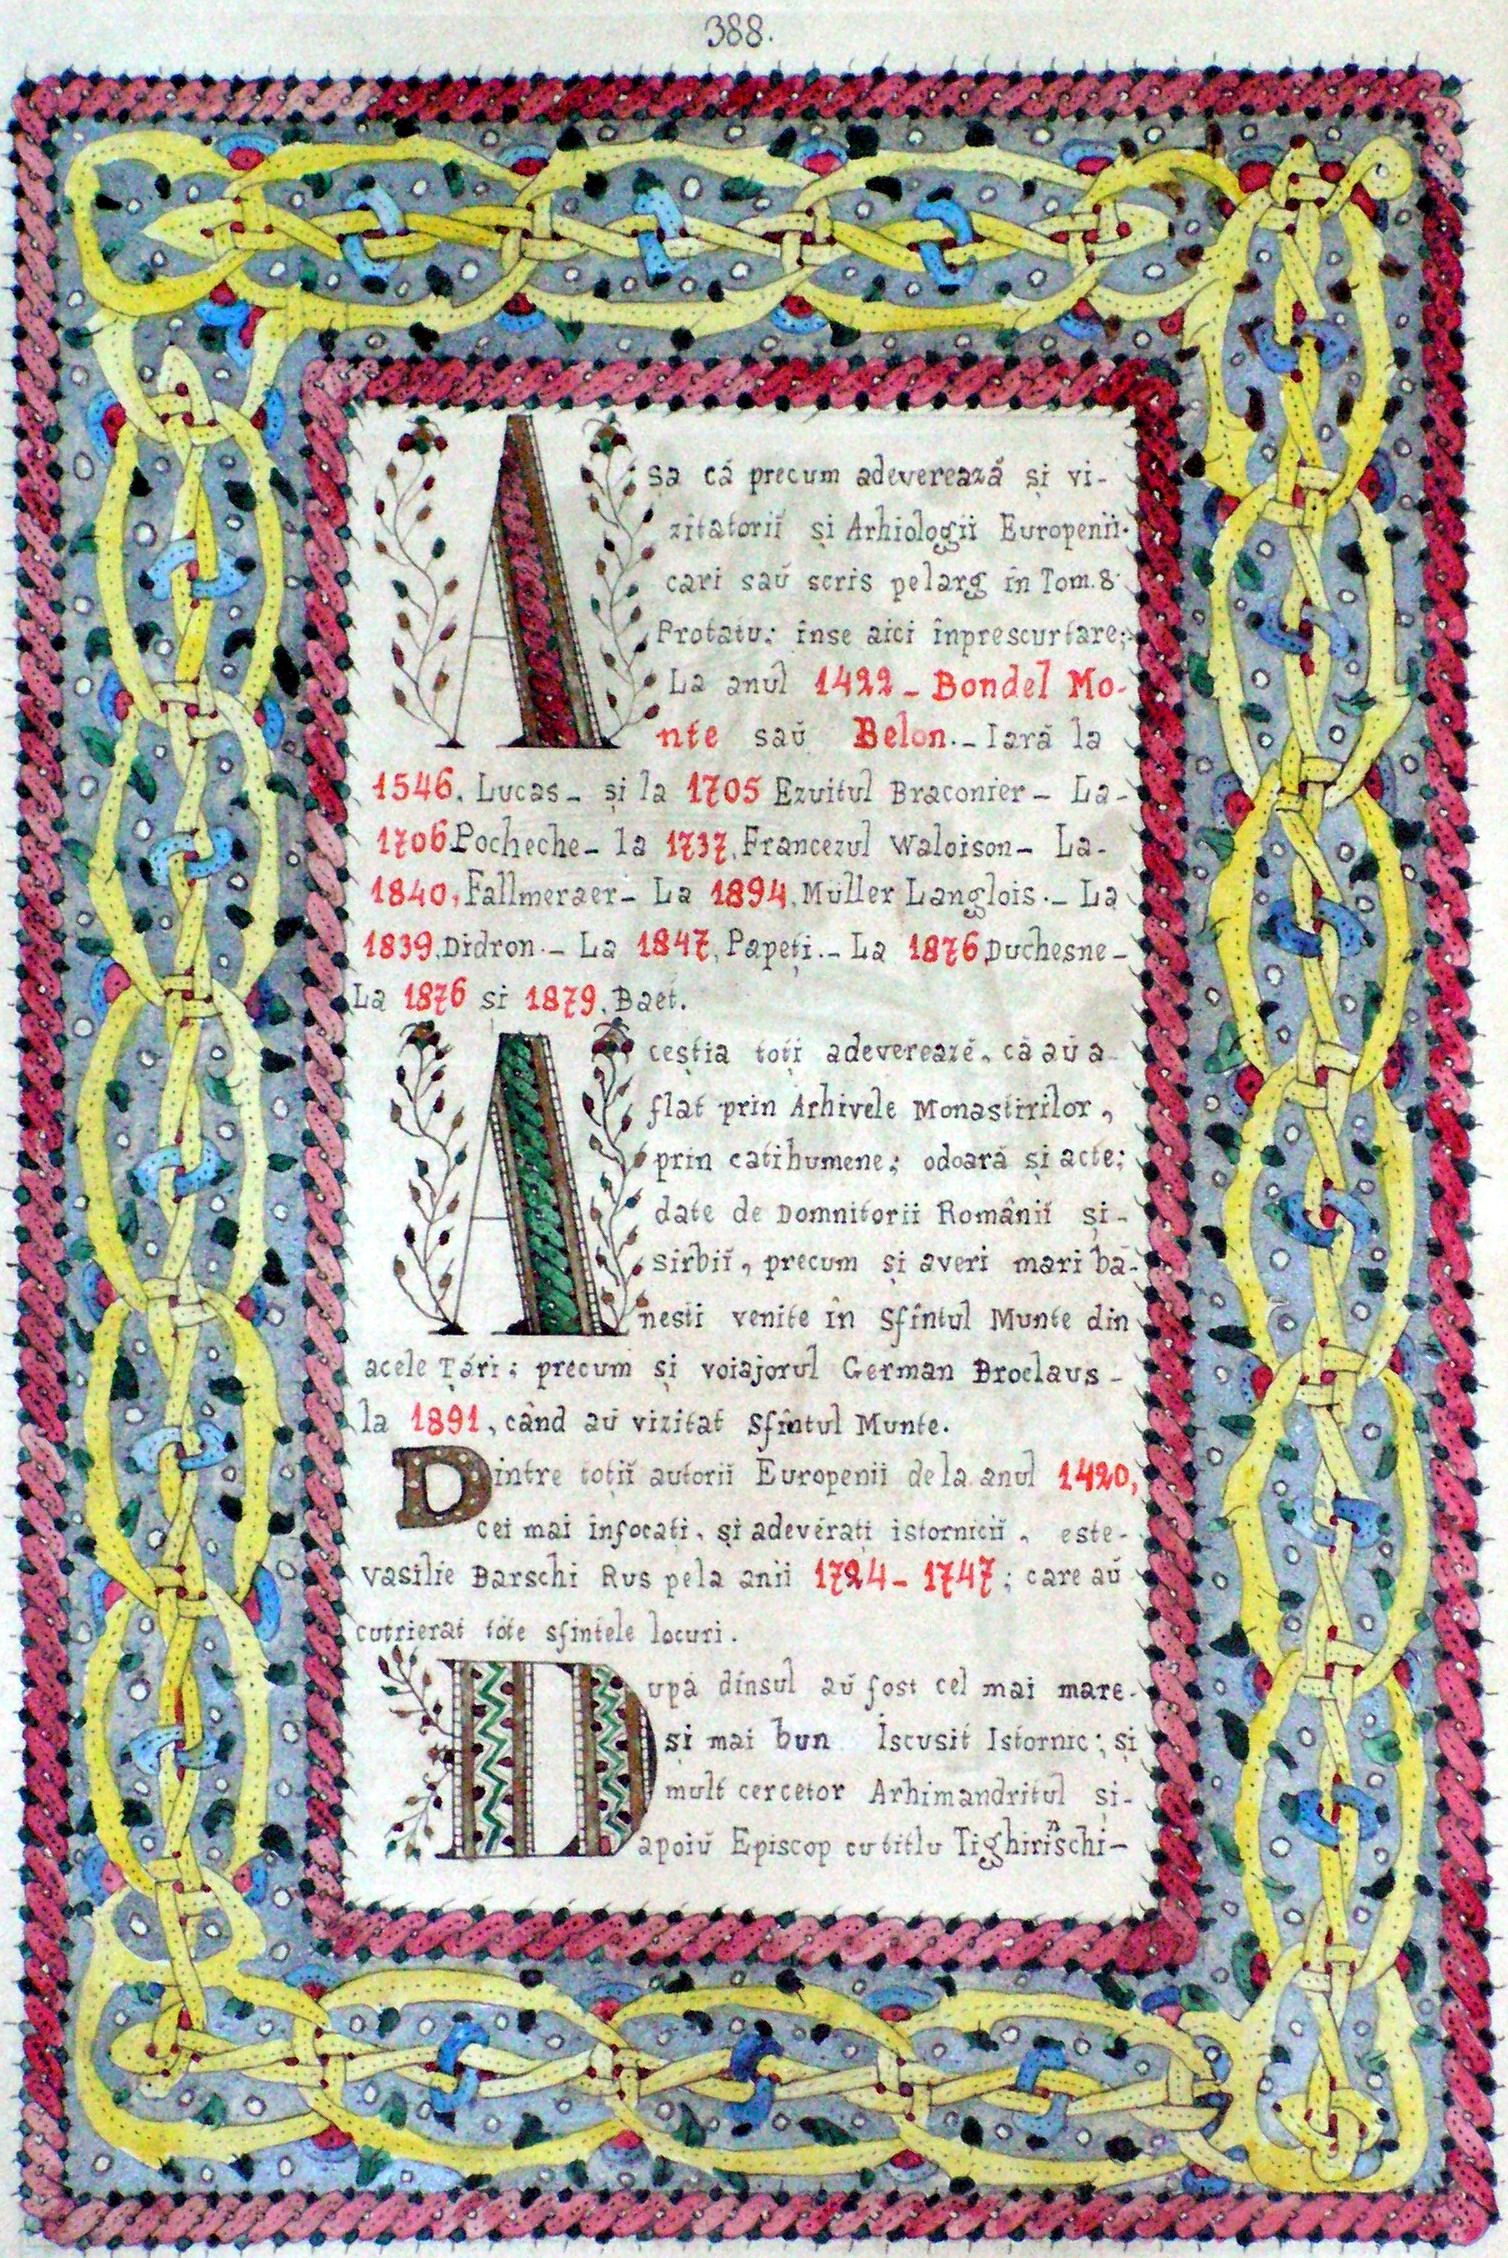 388.
Așa că precum adeverează și vi-
zitatorii și Arhiologii Europenii.
cari saŭ scris pe larg în Tom. 8
Protatu; înse aici înprescurtare;
La anul 1422 - Bondel Mo-
nte saŭ Belon. - Iară la
1546. Lucas - și la 1705 Ezuitul Braconier - La-
1706 Pocheche - la 1737, Francezul Waloison - La-
1840, Fallmeraer - La 1894, Müller Langlois. - La
1839. Didron. - La 1847, Papeți. - La 1876 Duchesne -
La 1876 si 1879. Baet.
Aceștia toți adevereazĕ, că aŭ a-
flat prin Arhivele Monastirilor,
prin catihumene; odoară și acte;
date de Domnitorii Românii și-
sirbiĭ, precum și averi mari bă-
nesti venite în Sfîntul Munte din
acele Țări; precum și voiajorul German Broclaus -
la 1891, când aŭ vizitat Sfîntul Munte.
Dintre toții autorii Europenii dela anul 1420,
cei mai înfocați, și adevĕrați istornicii, este-
vasilie Barschi Rus pela anii 1724 - 1747; care aŭ
cutrierat tóte sfintele locuri.
După dînsul aŭ fost cel mai mare-
și mai bun Iscusit Istornic; și
mult cercetor Arhimandritul si-
apoiŭ Episcop cu titlu Tighirinschi-